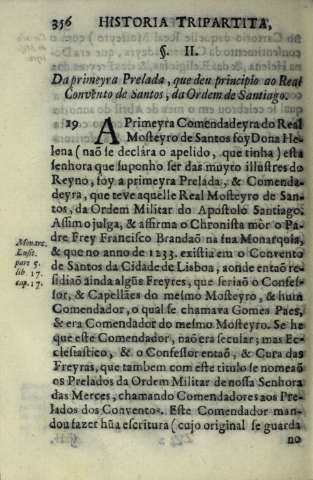 356 HISTORIA TRIPARTITA,
§. II.
Da primeyra Prelada, que deu principio ao Real
Convẽto de Santos, da Ordem de Santiago.
29. A Primeyra Comendadeyra do Real
Mosteyro de Santos foy Dona He-
lena (naõ se declára o apelido, que tinha) esta
senhora que suponho ser das muyto illustres do
Reyno, foy a primeyra Prelada, & Comenda-
deyra, que teve aquelle Real Mosteyro de San-
tos, da Ordem Militar do Apostolo Santiago.
Assim o julga, & affirma o Chronista mòr o Pà-
dre Frey Francisco Brandaõ na sua Monarquia,
& que no anno de 1233. existia em o Convento
de Santos da Cidade de Lisboa, aonde entaõ re-
sidiaõ ainda algũs Freyres, que seriaõ o Confes-
sor, & Capellães do mesmo Mosteyro, & hum
Comendador, o qual se chamava Gomes Paes,
& era Comendador do mesmo Mosteyro. Se he
que este Comendador, naõ era secular; mas Ec-
clesiastico, & o Confessor entaõ, & Cura das
Freyras, que tambem com este titulo se nomeaõ
os Prelados da Ordem Militar de nossa Senhora
das Merces, chamando Comendadores aos Pre-
lados dos Conventos. Este Comendador man-
dou fazer hũa escritura (cujo original se guarda
no
Monarc.
Lusit.
part 5.
lib 17.
cap. 17.